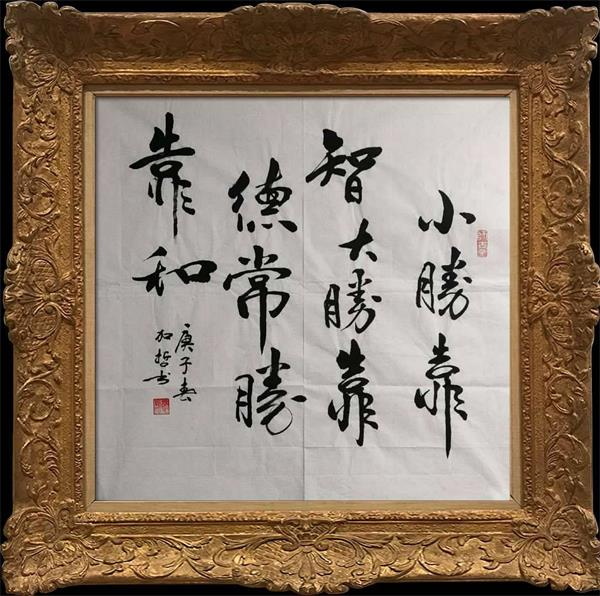 小勝靠
智大勝靠
德常勝
靠和
庚子春
加哲书